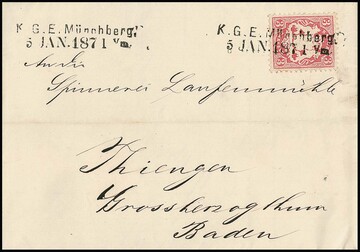 K. G. E. Münchberg.
5 JAN. 1871 Vm.
K. G. E. Münchberg.
5 JAN. 1871 Vm.
An die
Spinnerei Laufenmühle
Thiengen
Grossherzogthum
Baden